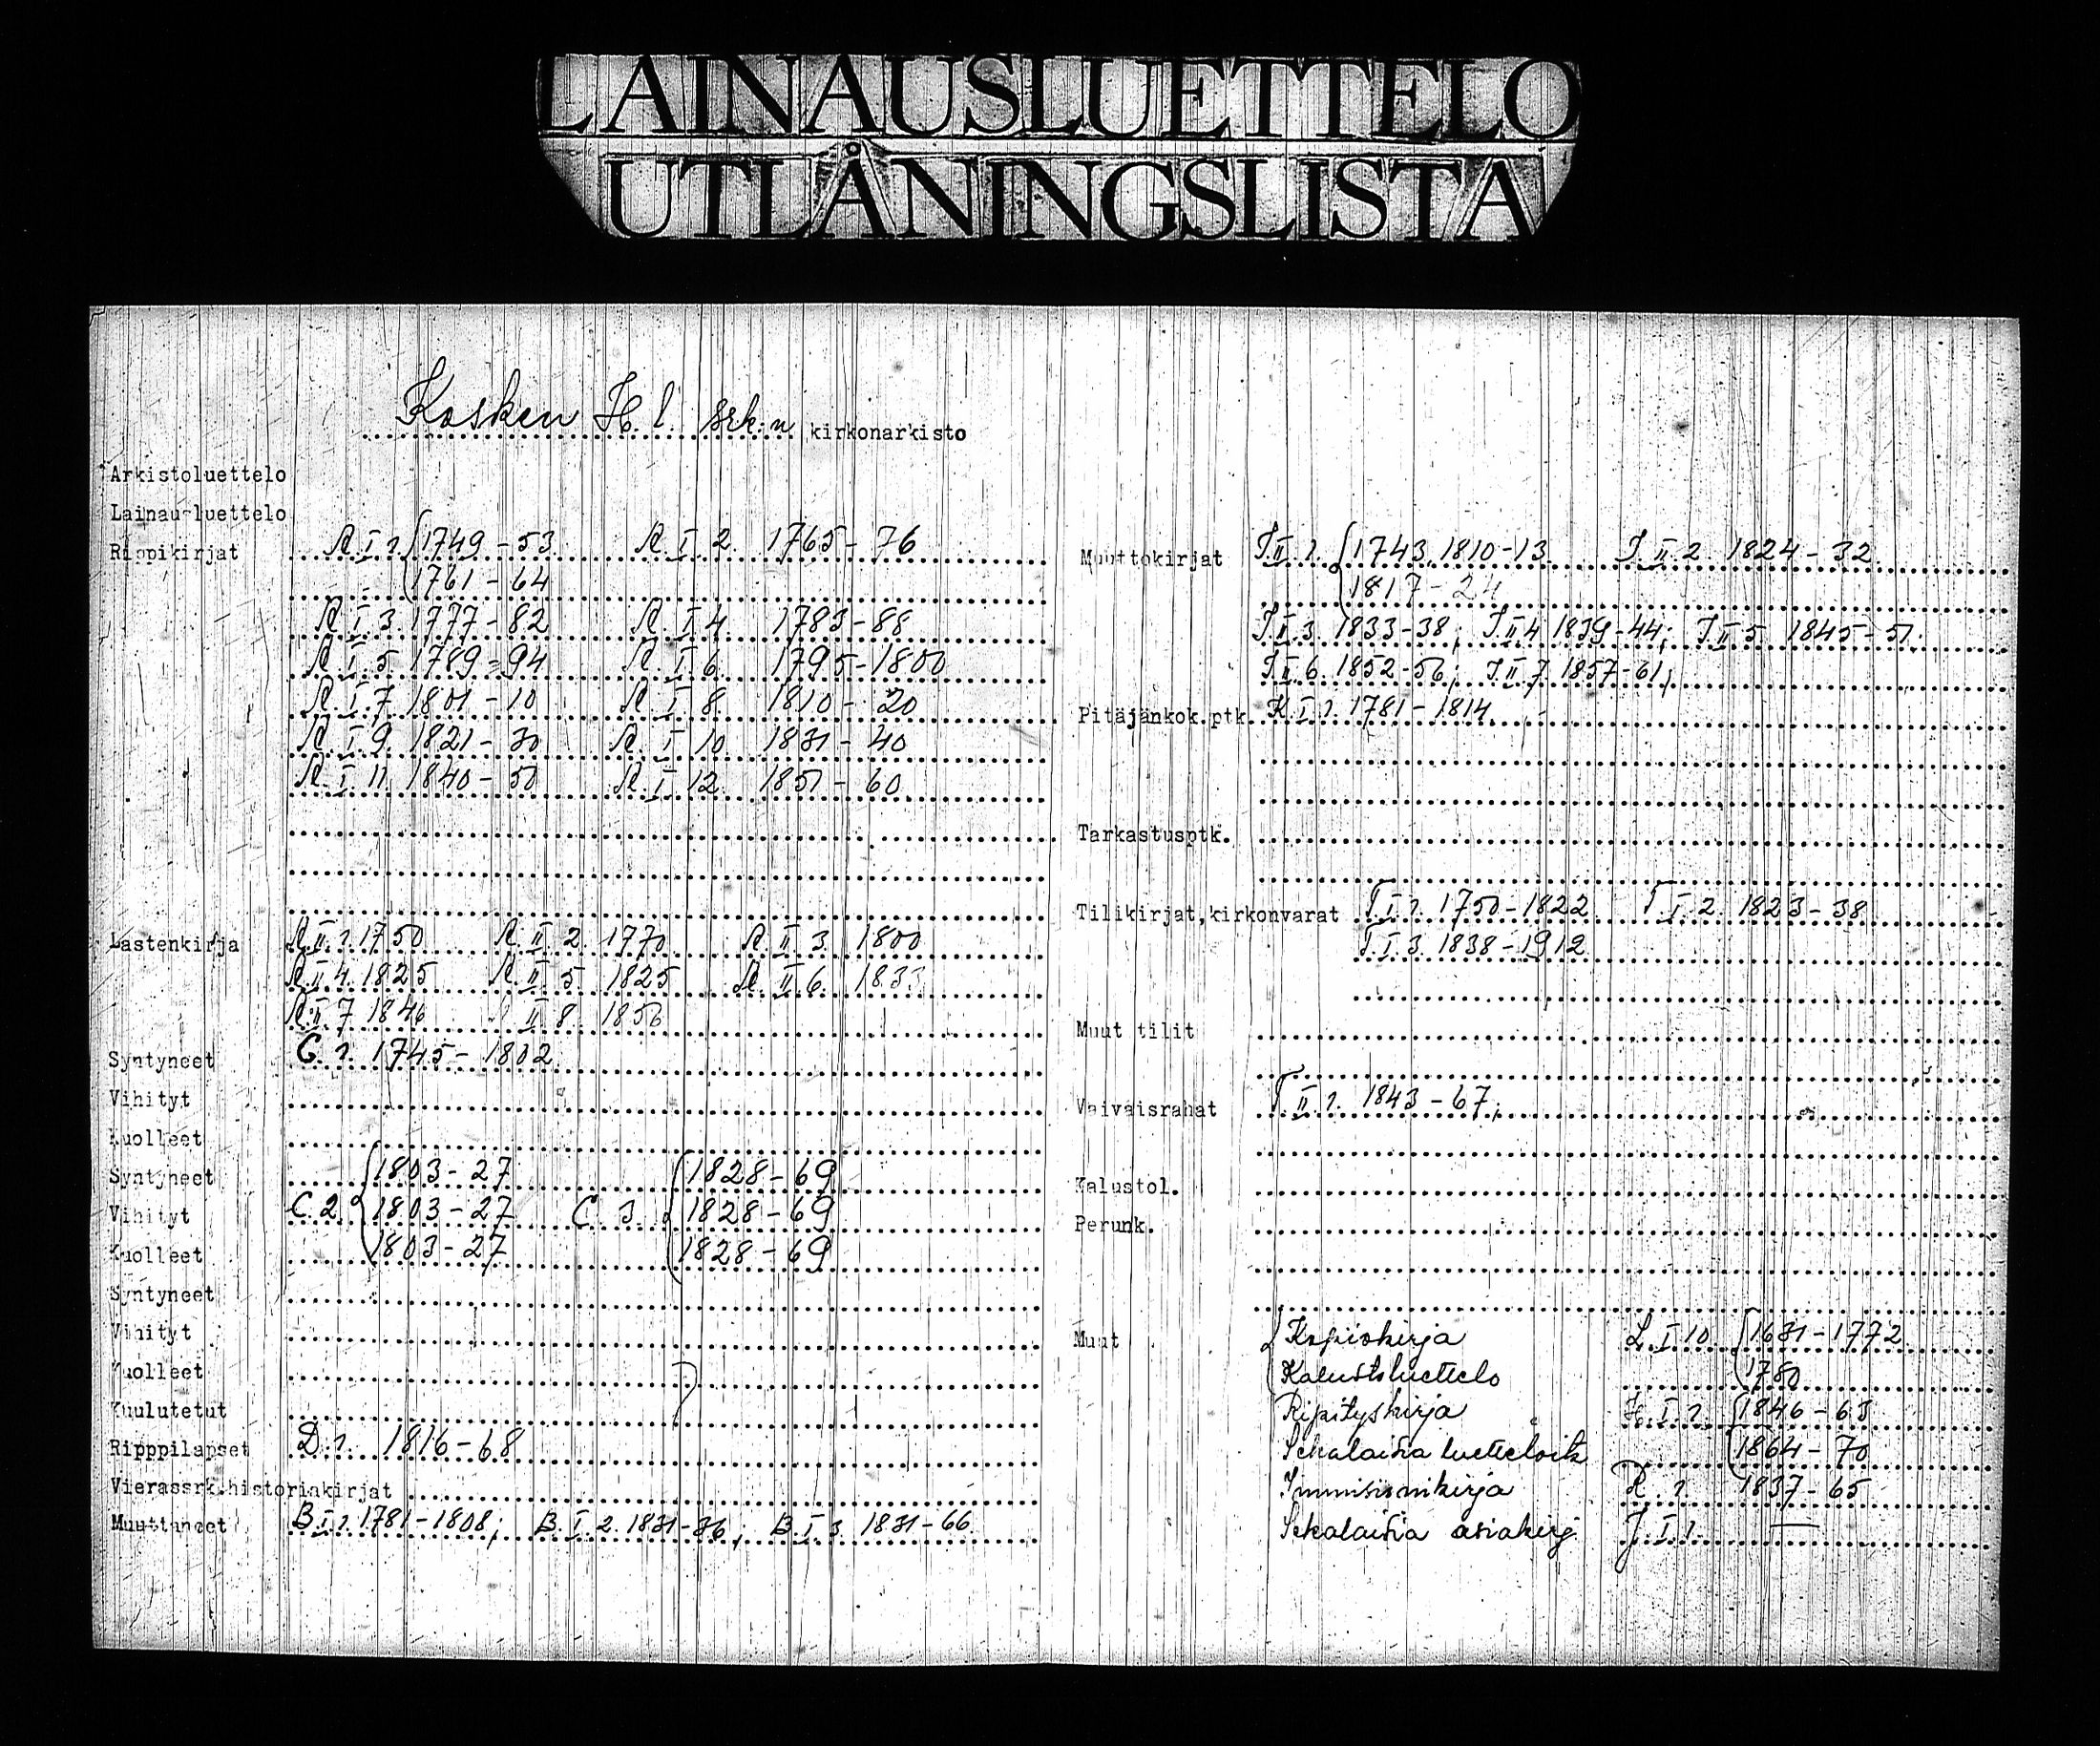 LAINAUSLUETTELO
UTLÅNINGSLISTA
Kosken H. l. srk:n kirkonarkisto
Arkistoluettelo
Lainausluettelo
Rippikirjat R. I. 1. {1749-53 R. I. 2. 1765-76
1761-64
R. I. 3. 1777-82 R. I. 4. 1783-88
R. I. 5. 1789-94 R. I. 6. 1795-1800
R. I. 7. 1801-10 R. I. 8. 1810-20
R. I. 9. 1821-30 R. I. 10. 1831-40
R. I. 11. 1840-50 R. I. 12. 1851-60
Lastenkirja R. II. 1. 1750 R. II. 2. 1770 R. II. 3. 1800
R. II. 4. 1825 R. II. 5. 1825 R. II. 6. 1833
R. II. 7. 1846 II. 8. 1856
Syntyneet C. 1. 1745-1802
Vihityt
Kuolleet
Syntyneet {1803-27 {1828-69
Vihityt C. 2. 1803-27 C. 3. 1828-69
Kuolleet 1803-27 1828-69
Syntyneet
Vihityt
Kuolleet
Kuulutetut
Ripppilapset D. 1. 1816-68
Vierassrk.historiakirjat
Muuttaneet B. I. 1. 1781-1808; B. I. 2. 1831-36; B. I. 3. 1831-66
Muuttokirjat I. II. 1. {1743, 1810-13 I. II. 2. 1824-32
1817-24
I. II. 3. 1833-38; I. II. 4. 1839-44; I. II. 5. 1845-51.
I. II. 6. 1852-56; I. II. 7. 1857-61;
Pitäjänkok.ptk. K. I. 1. 1781-1814
Tarkastusptk.
Tilikirjat,kirkonvarat T. I. 1. 1750-1822 T. I. 2. 1823-38
T. I. 3. 1838-1912
Muut tilit
Vaivaisrahat T. II. 1. 1843-67;
Kalustol.
Perunk.
Muut {Kopiokirja L. I. 10. {1631-1772
Kalustoluettelo 1780
Ripityskirja H. I. 1. {1846-63
Sekalaisia luetteloita 1864-70
Immissionikirja R. 1. 1837-65
Sekalaisia asiakirj. J. I. 1. —